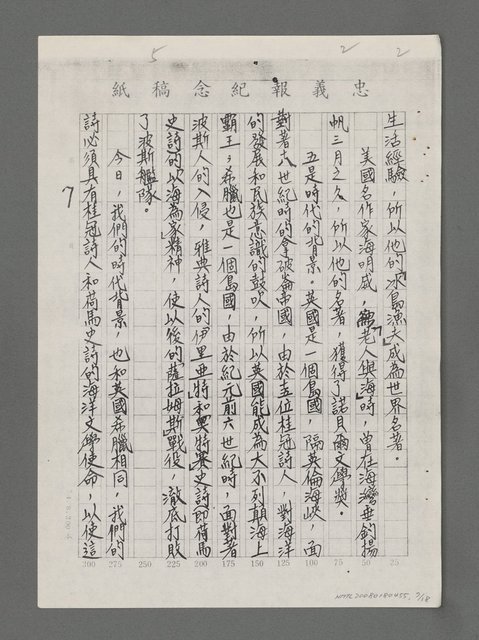 5 2 2
忠義報紀念稿紙
生活經驗,所以他的「冰島漁夫」成為世界名著。
美國名作家海明威,「老人與海」時,曾在海灣垂釣揚
帆三月之久,所以他的名著,獲得了諾貝爾文學獎。
五是時代的背景。英國是一個島國,隔英倫海峽,面
對著十八世紀時的拿破崙帝國,由於五位桂冠詩人,對海洋
的發展和民族意識的鼓吹,所以英國能成為大不列顛海上
霸王;希臘也是一個島國,由於紀元前六世紀時,面對著
波斯人的入侵,雅典詩人的伊里亞特和奧特賽史詩即荷馬
史詩的「以海為家」精神,使以後的「薩拉姆斯」戰役,澈底打敗
了波斯艦隊。
今日,我們的時代背景,也和英國希臘相同,我們的
詩必須具有桂冠詩人和荷馬史詩的海洋文學使命,以使這
7
300 275 250 225 200 175 150 125 100 75 50 25
NMTL20080180455, 7/18